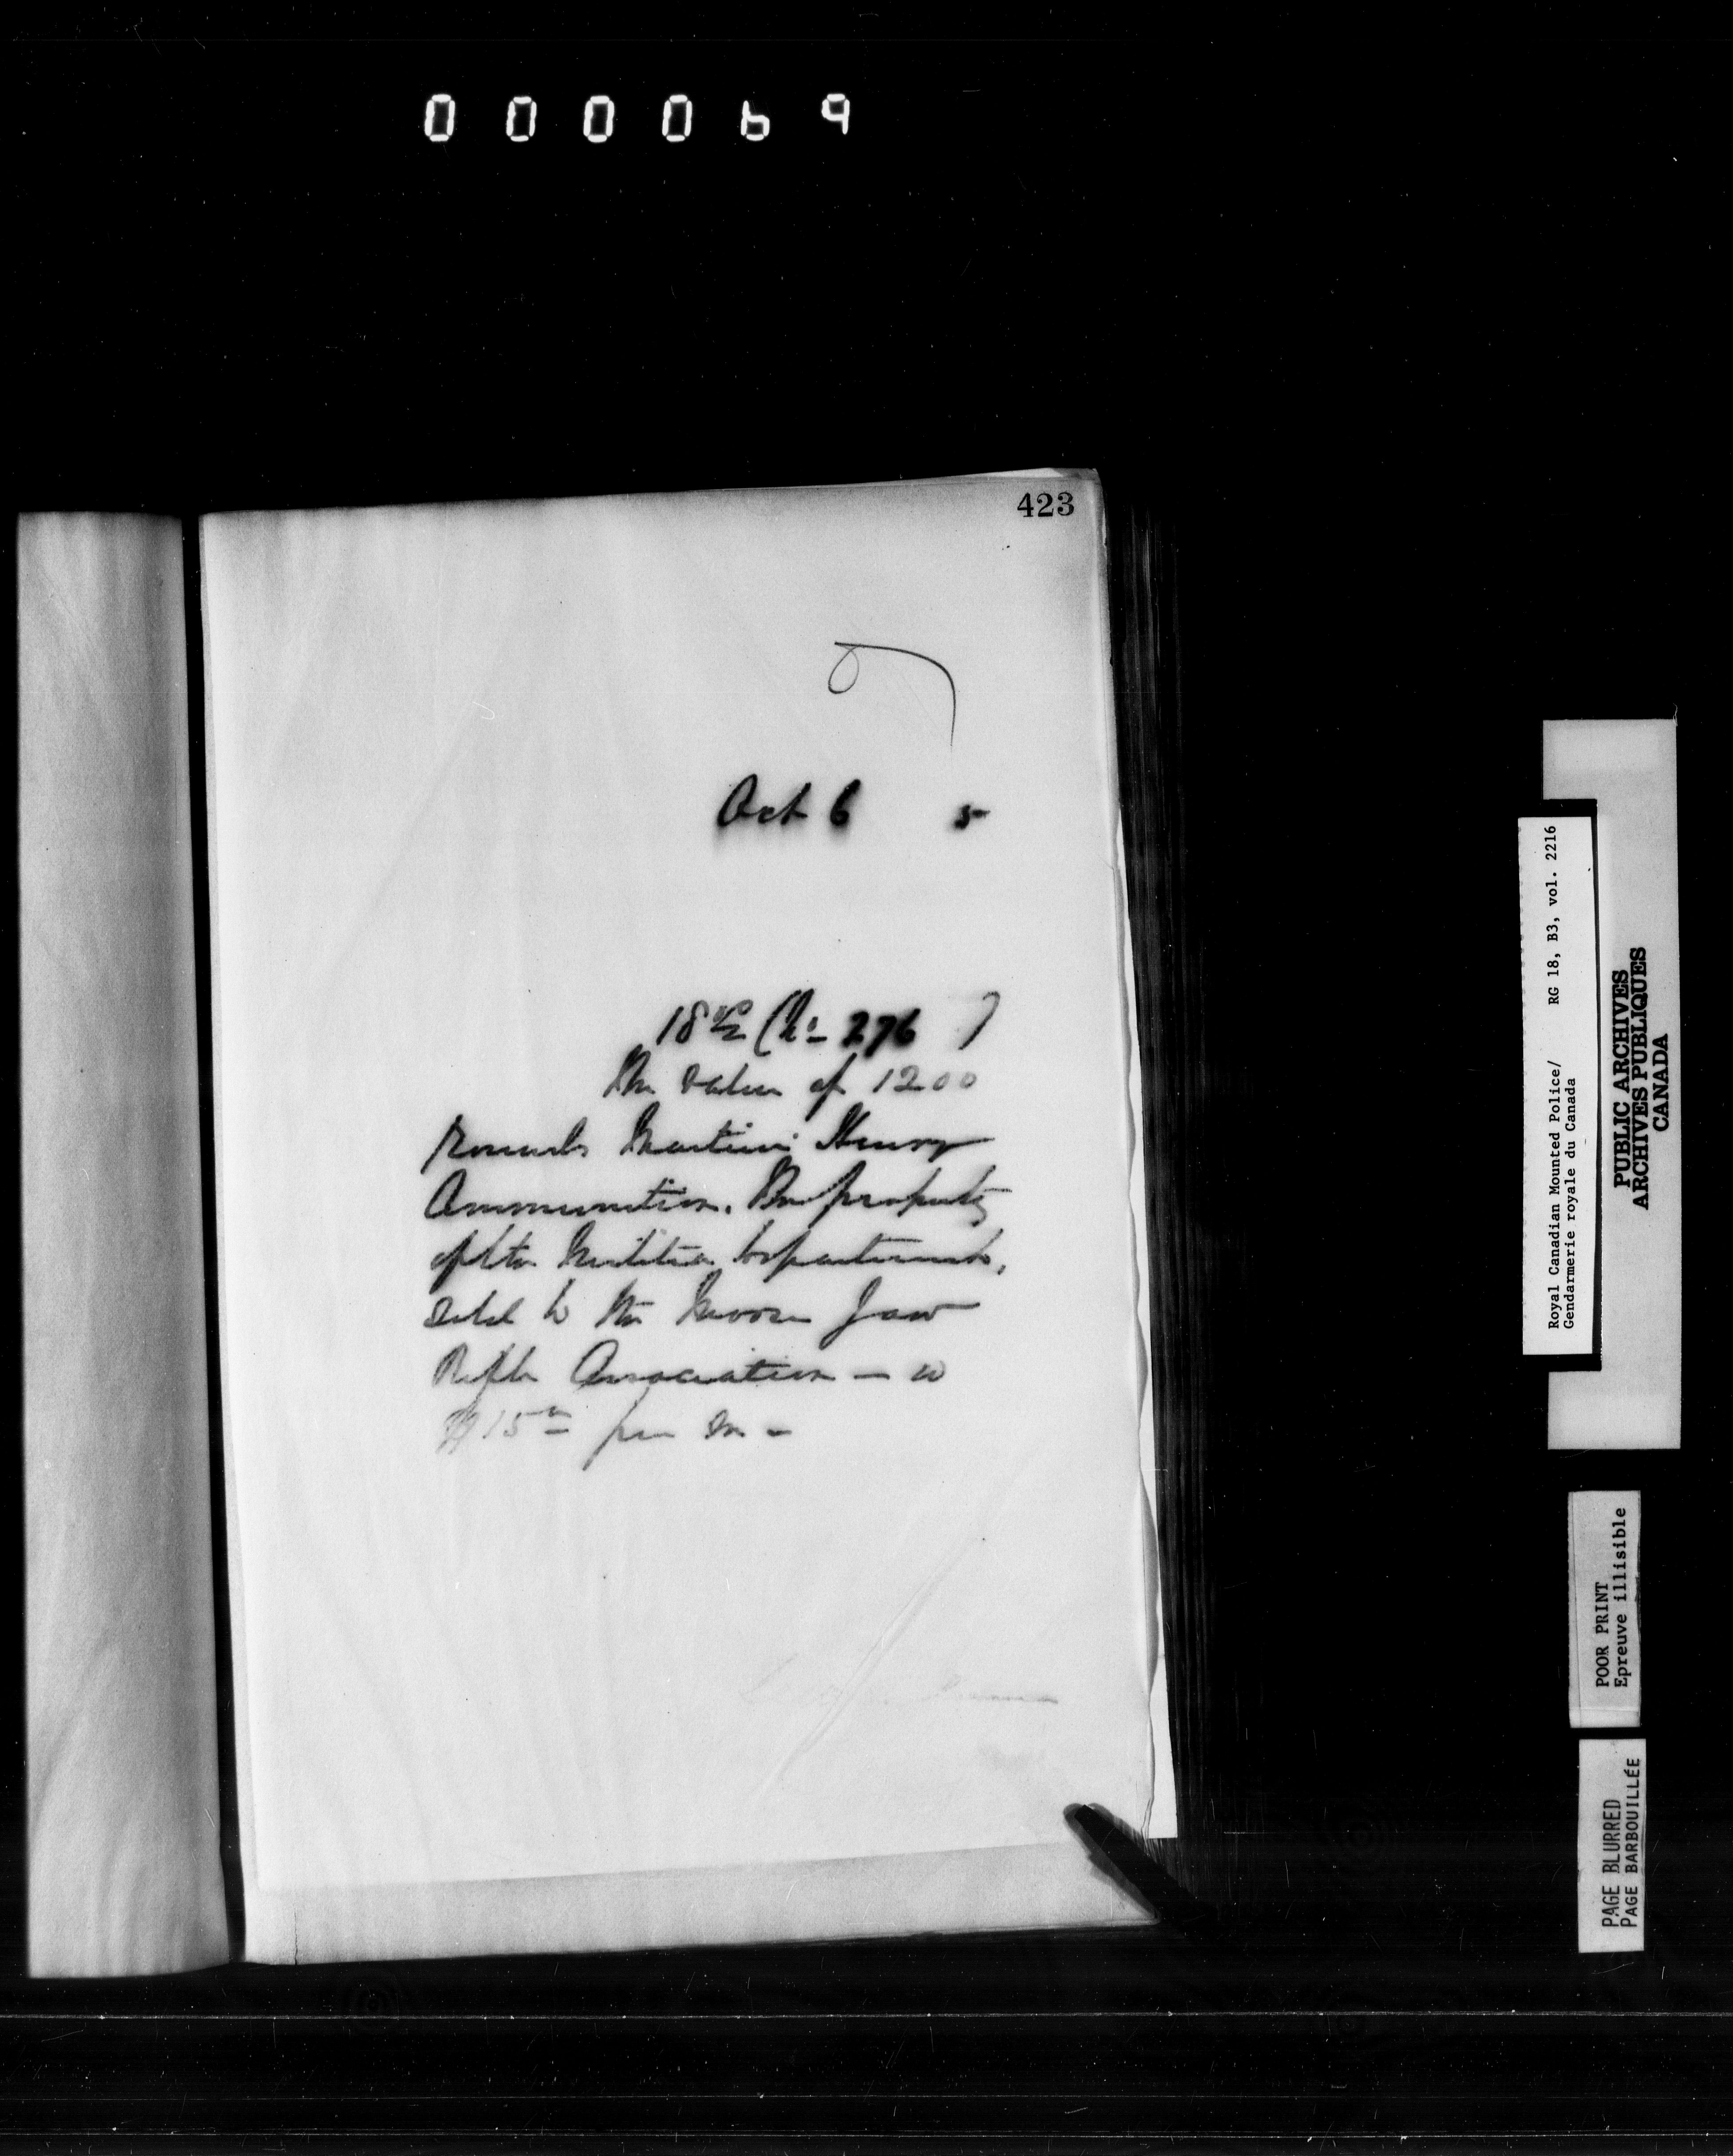 000069
423
Oct 6 5
18 00/00 (No 276 )
The value of 1200
rounds Martini Henry
Ammunition. The property
of the Militia Department,
sold to the Moose Jaw
Rifle Association — @
$15 00 per M —
Royal Canadian Mounted Police/ RG 18, B3, vol. 2216
Gendarmerie royale du Canada
PUBLIC ARCHIVES
ARCHIVES PUBLIQUES
CANADA
POOR PRINT
Epreuve illisible
PAGE BLURRED
PAGE BARBOUILLÉE